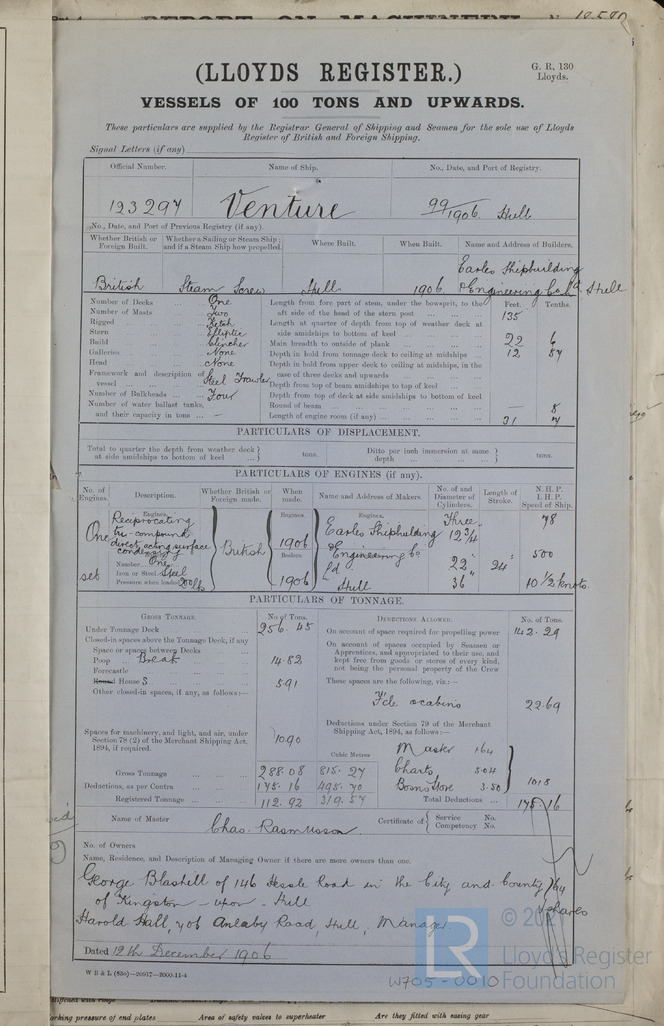 REPORT ON MACHINERY No. 18580
(LLOYDS REGISTER.)
G. R. 130
Lloyds.
VESSELS OF 100 TONS AND UPWARDS.
These particulars are supplied by the Registrar General of Shipping and Seamen for the sole use of Lloyds
Register of British and Foreign Shipping.
Signal Letters (if any)
Official Number. Name of Ship. No., Date, and Port of Registry.
123297 Venture 99/1906 Hull
No., Date, and Port of Previous Registry (if any).
Whether British or Foreign Built. Whether a Sailing or Steam Ship; and if a Steam Ship how propelled. Where Built. When Built. Name and Address of Builders.
British Steam Screw Hull 1906 Earles Shipbuilding & Engineering Co Ld Hull
Number of Decks One
Number of Masts Two
Rigged Ketch
Stern Elliptic
Build Clincher
Galleries None
Head None
Framework and description of vessel Steel Trawler
Number of Bulkheads Four
Number of water ballast tanks, and their capacity in tons —
Feet. Tenths.
Length from fore part of stem, under the bowsprit, to the aft side of the head of the stern post 135
Length at quarter of depth from top of weather deck at side amidships to bottom of keel
Main breadth to outside of plank 22 6
Depth in hold from tonnage deck to ceiling at midships 12 57
Depth in hold from upper deck to ceiling at midships, in the case of three decks and upwards
Depth from top of beam amidships to top of keel
Depth from top of deck at side amidships to bottom of keel
Round of beam — 8
Length of engine room (if any) 31 7
PARTICULARS OF DISPLACEMENT.
Total to quarter the depth from weather deck at side amidships to bottom of keel tons.
Ditto per inch immersion at same depth tons.
PARTICULARS OF ENGINES (if any).
No. of Engines. Description. Whether British or Foreign made. When made. Name and Address of Makers. No. of and Diameter of Cylinders. Length of Stroke. N.H.P. I.H.P. Speed of Ship.
One set
Engines.
Reciprocating tri-compound direct acting surface condensing
Number One
Iron or Steel Steel
Pressure when loaded 200 lbs
British
Engines. 1906
Boilers. 1906
Engines.
Earles Shipbuilding & Engineering Co Ld Hull
Three
12 3/4
22"
36"
24"
78
500
10 1/2 knots
PARTICULARS OF TONNAGE.
GROSS TONNAGE. No. of Tons.
Under Tonnage Deck 256.45
Closed-in spaces above the Tonnage Deck, if any
Space or spaces between Decks
Poop Break 14.82
Forecastle
Round House S. 5.91
Other closed-in spaces, if any, as follows:—
Spaces for machinery, and light, and air, under Section 78 (2) of the Merchant Shipping Act, 1894, if required. 10.90
Cubic Metres
Gross Tonnage 288.08 815.27
Deductions, as per Contra 175.16 495.70
Registered Tonnage 112.92 319.57
DEDUCTIONS ALLOWED. No. of Tons.
On account of space required for propelling power 142.29
On account of spaces occupied by Seamen or Apprentices, and appropriated to their use, and kept free from goods or stores of every kind, not being the personal property of the Crew
These spaces are the following, viz:—
F'cle & cabins 22.69
Deductions under Section 79 of the Merchant Shipping Act, 1894, as follows:—
Master 1.64
Charts 5.04
Bosns Store 3.50
10.18
Total Deductions 175.16
Name of Master Chas. Rasmusson Certificate of Service No. Competency No.
No. of Owners
Name, Residence, and Description of Managing Owner if there are more owners than one.
George Blashill of 146 Hessle Road in the City and County
of Kingston-upon-Hull
64 shares
Harold Hall, of Anlaby Road, Hull, Manager.
Dated 12th December 1906
W B & L (83s)—20917—2000-11-4
W705-0010
LR
© 2021
Lloyd's Register
Foundation
working pressure of end plates Area of safety valves to superheater Are they fitted with easing gear